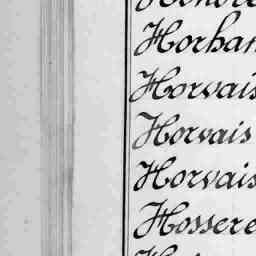 Horhan
Horvais
Horvais
Horvais
Hossere